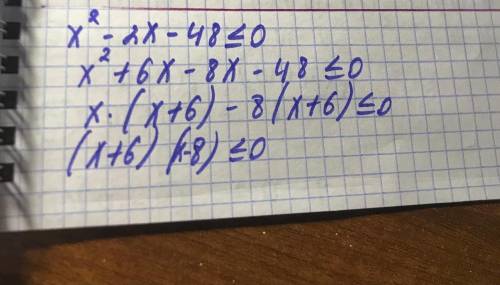 x² - 2x - 48 ≤ 0
x² + 6x - 8x - 48 ≤ 0
x · (x+6) - 8(x+6) ≤ 0
(x+6)(x-8) ≤ 0